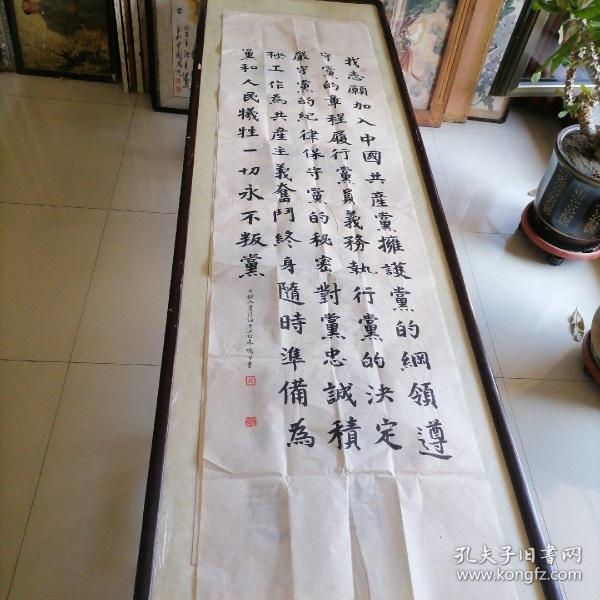 我志願加入中國共產黨擁護黨的綱領遵
守黨的章程履行黨員義務執行黨的決定
嚴守黨的紀律保守黨的秘密對黨忠誠積
極工作為共產主義奮鬥終身隨時準備為
黨和人民犧牲一切永不叛黨
孔夫子旧书网
www.kongfz.com